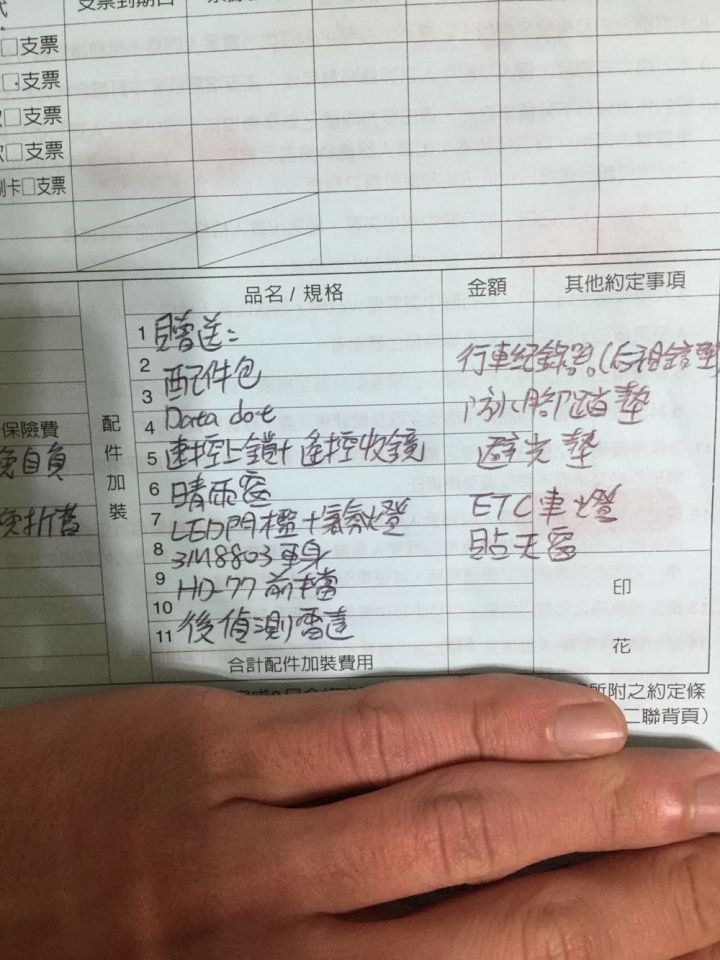 支票到期日
□支票
□支票
□支票
□支票
刷卡□支票
品名 / 規格
金額
其他約定事項
保險費
免自負
免折舊
配件加裝
1 贈送:
2 配件包
3
4 Data dot
5 速控上鎖+遙控收鏡
6 晴雨窗
7 LED門檻+氣氛燈
8 3M8803車身
9 HD-77前檔
10
11 後偵測雷達
行車紀錄器。
防水腳踏墊
避光墊
ETC車燈
貼天窗
印
花
合計配件加裝費用
所附之約定條
二聯背頁)